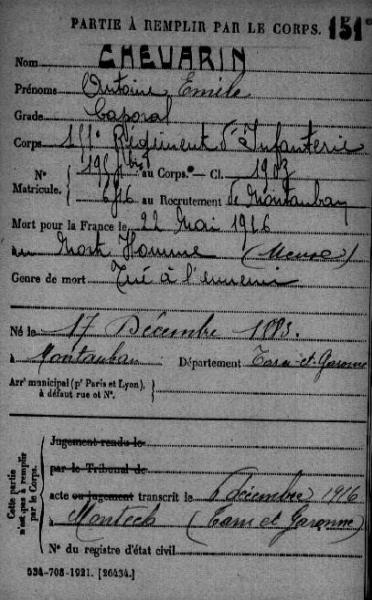 PARTIE À REMPLIR PAR LE CORPS. 151e
Nom CHEVARIN
Prénoms Antoine Emile
Grade Caporal
Corps 111e Régiment d'Infanterie
N° Matricule. { au Corps. — Cl. 1903
6416 au Recrutement de Montauban
Mort pour la France le 22 Mai 1916
au Mort Homme (Meuse)
Genre de mort Tué à l'ennemi
Né le 17 Décembre 1883.
à Montauban Département Tarn-et-Garonne
Arrt municipal (pr Paris et Lyon), à défaut rue et N°. {
Cette partie n'est pas à remplir par le Corps.
Jugement rendu le
par le Tribunal de
acte ou jugement transcrit le 6 décembre 1916
à Montech (Tarn et Garonne)
N° du registre d'état civil
534-708-1921. [26434.]